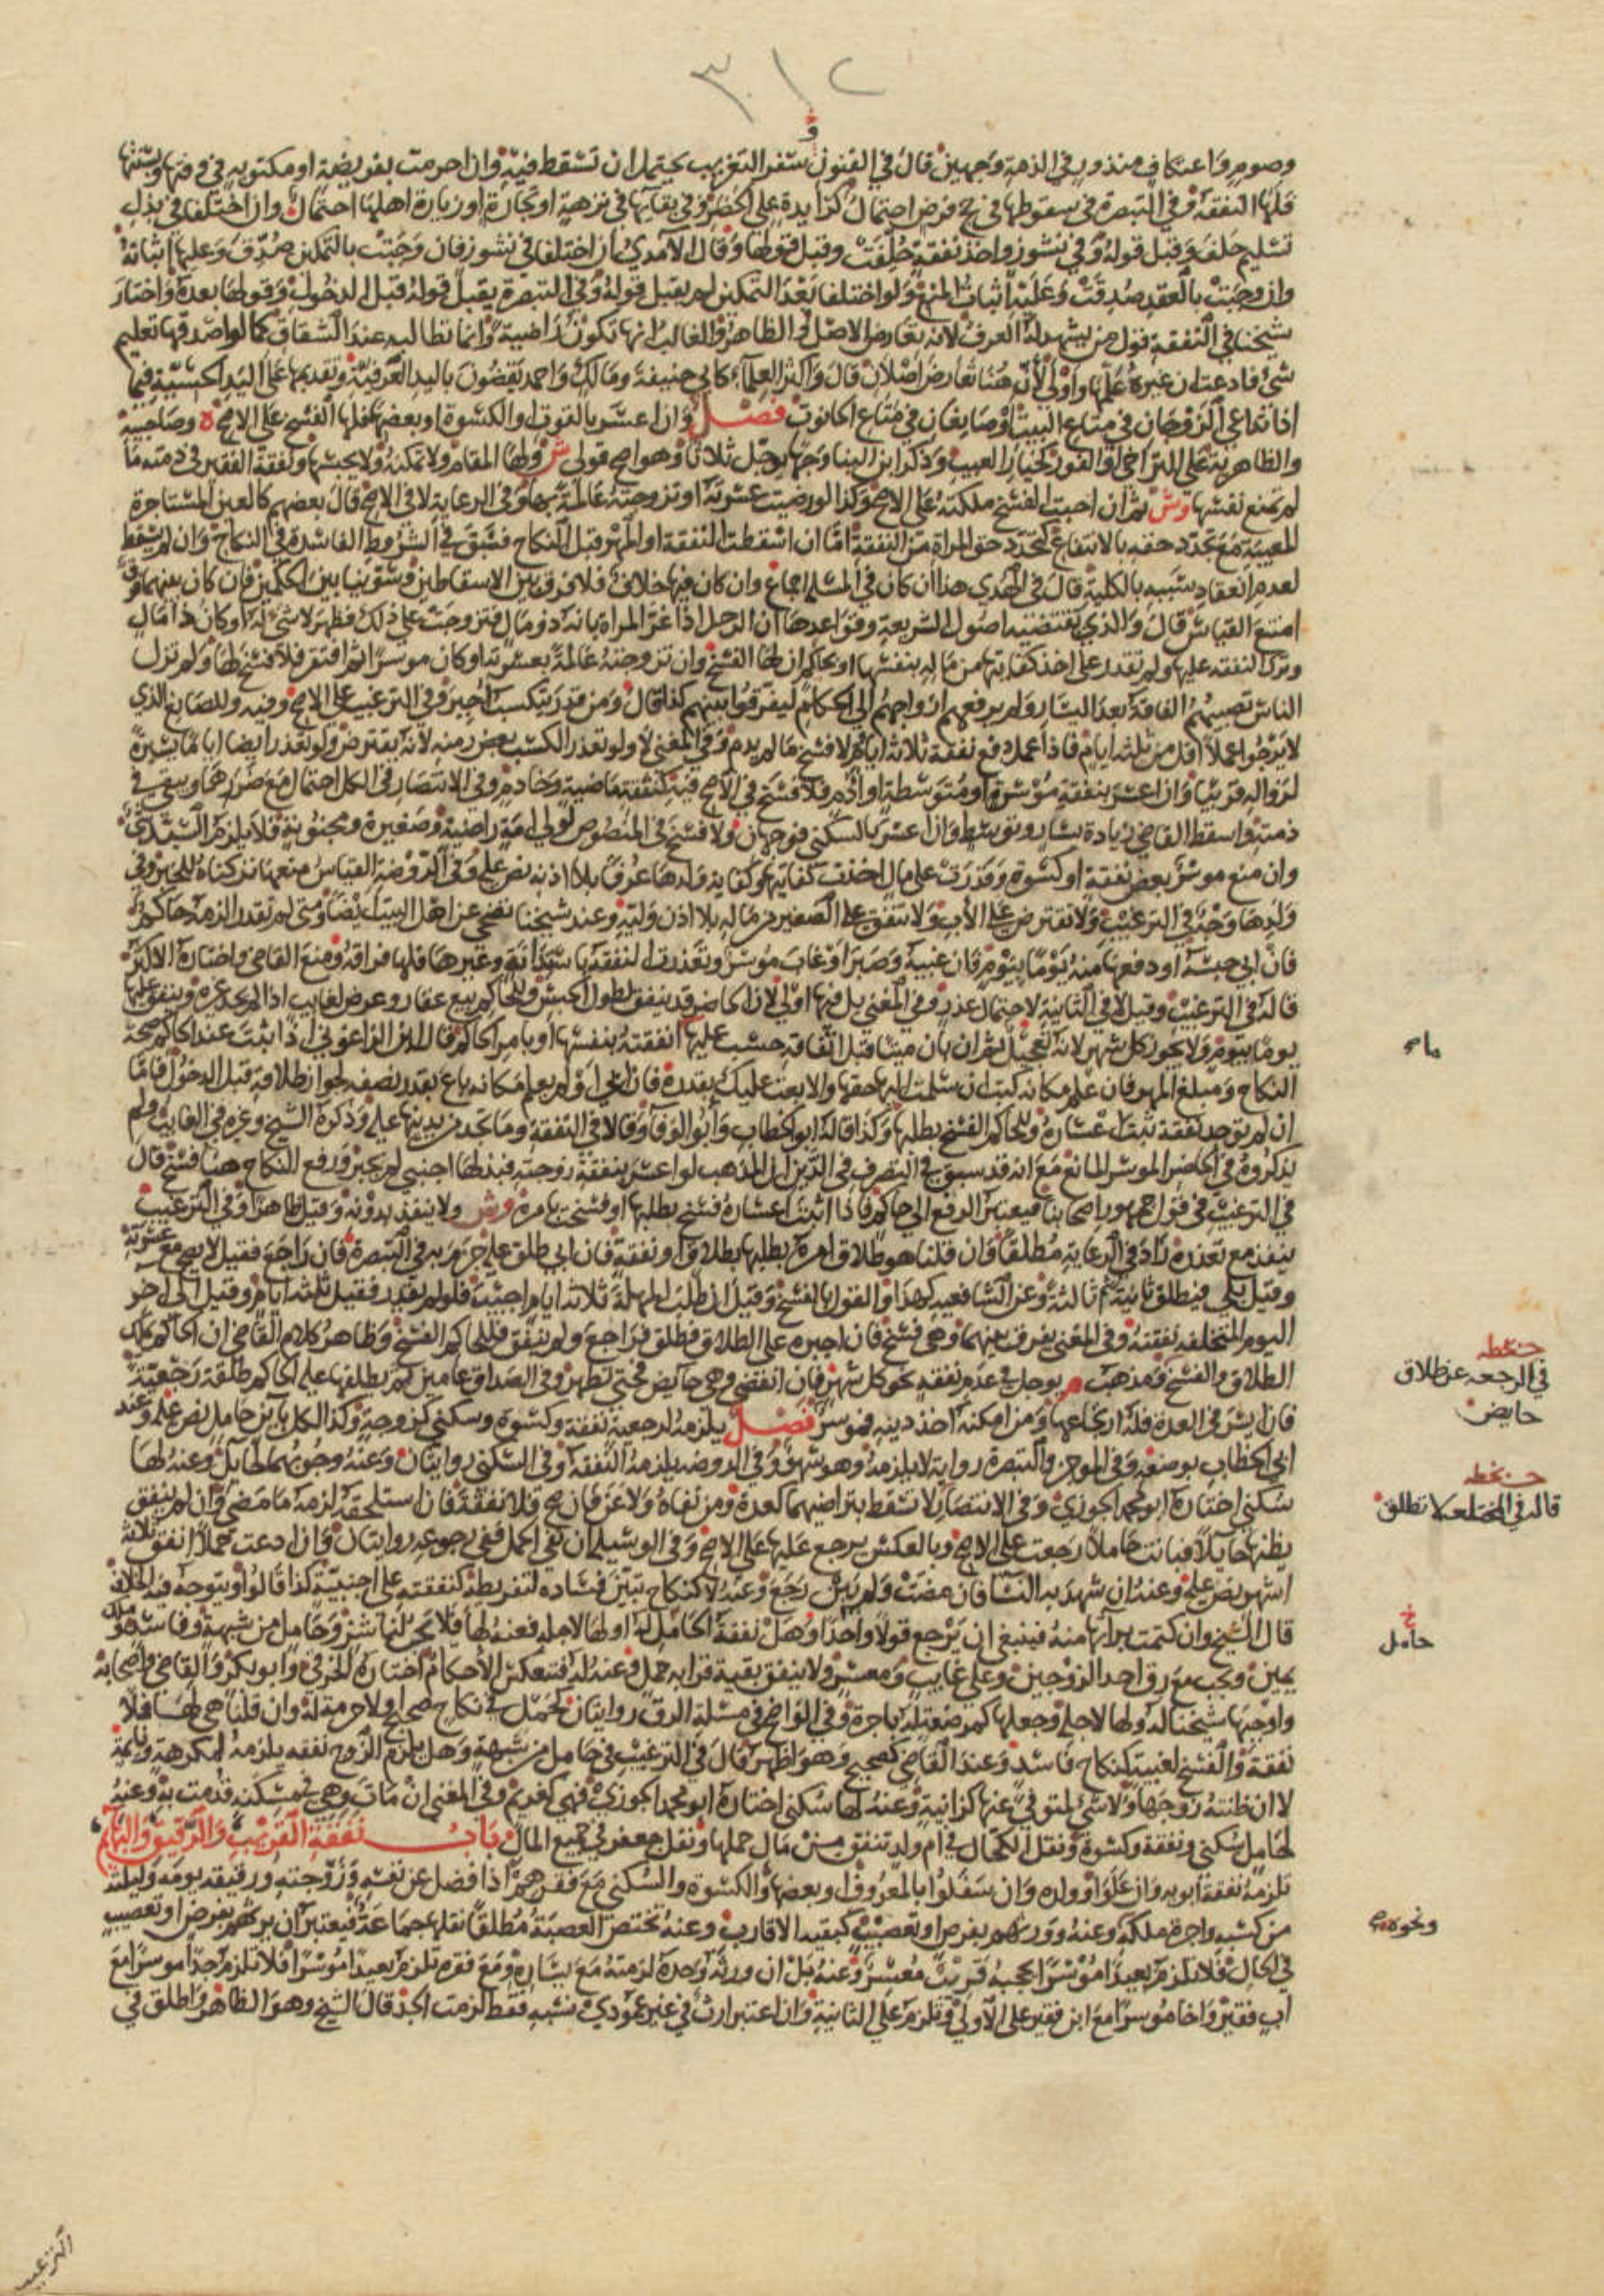 ٣١٢
و
وصوم واعتكاف منذور في الذمة وجهين قال في الفنون سفر التغريب يحتمل ان تسقط فيه وان احرمت بفريضة او مكتوبة في وقتها وسنتها
فلها النفقة وفي التبصرة في سقوطها في حج فرض احتمال كزايدة على الحضر وفي بقايها في نزهة او تجارة او زيارة اهلها احتمال وان اختلفا في بذل
تسليم حلف وقبل قوله وفي نشوز واخذ نفقة حلفت وقبل قولها وقال الامدي ان اختلفا في نشوز فان وجبت بالتمكين صدق وعليها اثباته
وان وجبت بالعقد صدقت وعليه اثبات المنع ولو اختلفا بعد التمكين لم يقبل قوله وفي التبصرة يقبل قوله قبل الدخول وقولها بعده واختار
شيخنا في النفقة قول من يشهد له العرف لانه تعارض الاصل والظاهر والغالب انها تكون راضية وانما تطالبه عند الشقاق كما لو اصدقها تعليم
شئ فادعت ان غيره علمها واولى لان هنا تعارض اصلان قال واكثر العلماء كابي حنيفة ومالك واحمد يقضون باليد العرفية وتقديمها على اليد الحسية فيما
اذا تداعى الزوجان في متاع البيت او صانعان في متاع الحانوت فصل وان اعسر بالقوت او الكسوة او بعضهما فلها الفسخ على الاصح ه وصاحبيه
والظاهرية على التراخي او الفور كخيار العيب وذكر ابن البنا وجها يوجل ثلاثا وهو اصح قولي ش ولها المقام ولا تمكنه ولا يحبسها ونفقة الفقير في ذمته ما
لم تمنع نفسها وش ثم ان احبت الفسخ ملكته على الاصح وكذا لو رضيت عسرته او تزوجته عالمة بها وفي الرعاية لا في الاصح قال بعضهم كالعين المستاجرة
المعيبة مع تجدد حقه بالانتفاع كتجدد حق المراة من النفقة اما ان اسقطت النفقة او المهر قبل النكاح فسبق في الشروط الفاسدة في النكاح وان لم يسقط
لعدم انعقاد سببه بالكلية قال في الهدي هذا ان كان في المسلة اجماع وان كان فيها خلاف فلا فرق بين الاسقاطين وسوينا بين الحكمين فان كان بينهما فرق
امتنع القياس قال والذي تقتضيه اصول الشريعة وقواعدها ان الرجل اذا غر المراة بانه ذو مال فتزوجت على ذلك فظهر لا شئ له او كان ذا مال
وترك النفقة عليها ولم تقدر على اخذ كفايتها من ماله بنفسها او بحاكم ان لها الفسخ وان تزوجته عالمة بعسرته او كان موسرا ثم افتقر فلا فسخ لها ولم تزل
الناس تصيبهم الفاقة بعد اليسار ولم يرفعهم ازواجهم الى الحكام ليفرقوا بينهم كذا قال ومن قدر يتكسب اجبر وفي الترغيب على الاصح وفيه وللصانع الذي
لا يرجوا عملا اقل من ثلثه ايام فاذا عمل دفع نفقة ثلاثة ايام لا فسخ ما لم يدم وفي المغني لا ولو تعذر الكسب بعض زمنه لانه يقترض ولو تعذر ايضا اياما يسيرة
لزواله قريبا وان اعسر بنفقة موسرة او متوسطة او ادم فلا فسخ في الاصح فيه كنفقة ماضية وخادم وفي الانتصار في الكل احتمال مع ضررها ويبقى في
ذمته واسقط القاضي زيادة يسار وتوسط وان اعسر بالسكنى فوجهان ولا فسخ في المنصوص لولي امة راضية وصغيرة ومجنونة فلا يلزم السيد شي
وان منع موسر بعض نفقة او كسوة وقدرت على مال اخذت كفايتها وكفاية ولدها عرفا بلا اذنه نص عليه وفي الروضة القياس منعها تركناه للخبر وفي
ولدها وجه في الترغيب ولا تقترض على الاب ولا تنفق على الصغير من ماله بلا اذن وليه وعند شيخنا تضحي عن اهل البيت ايضا ومتى لم تقدر الزمه حاكم
فان ابى حبسه او دفعها منه يوما بيوم فان غيبه وصبر او غاب موسر وتعذرت النفقة باستدانة وغيرها فلها فراقه ومنع القاضي واختاره الاكثر
قاله في الترغيب وقيل لا في الثانية لاحتمال عذر وفي المغني بل فيها اولى لان الحاضر قد ينفق لطول الحبس وللحاكم بيع عقار وعرض لغايب اذا لم يجد غيره وينفق عليها
يوما بيوم ولا يجوز كل شهر لانه تعجيل ثم ان بان ميتا قبل انفاقه حسب عليها ما انفقته بنفسها او بامر الحاكم قال ابن الزاغوني اذا ثبت عند الحاكم صحة
النكاح ومبلغ المهر فان علم مكانه كتب ان سلمت اليها حقها والا بعت عليك بقدره فان ابى او لم يعلم مكانه باع بقدر نصفه لجواز طلاقه قبل الدخول فاما
ان لم توجد نفقة ثبت اعساره وللحاكم الفسخ بطلبها وكذا قاله ابو الخطاب وابو الوفا وقالا في النفقة وما تجد من يدينها عليه وذكره الشيخ وغيره في الغايب ولم
يذكروه في الحاضر الموسر المانع مع انه قد سبق في التصرف في الدين ان المذهب لو اعسر بنفقة زوجته فبذلها اجنبي لم يجبر ورفع النكاح هنا فسخ قال
في الترغيب في قول جمهور اصحابنا فيعتبر الرفع الى حاكم فاذا اثبت اعساره فسخ بطلبها او فسخت بامره وش ولا ينفذ بدونه وقيل ظاهرا وفي الترغيب
ينفذ مع تعذره زاد في الرعاية مطلقا وان قلنا هو طلاق امره بطلبها بطلاق او نفقة فان ابى طلق عليه جزم به في التبصرة فان راجع فقيل لا يصح مع عسرته
وقيل بلى فيطلق ثانية ثم ثالثة وعن الشافعية كهذا والقول بالفسخ وقيل ان طلب المهلة ثلاثة ايام اجيب فلو لم يقدر فقيل ثلثة ايام وقيل الى اخر
اليوم المتخلفة نفقته وفي المغني يفرق بينهما وهي فسخ فان اجبره على الطلاق فطلق فراجع ولم ينفق فللحاكم الفسخ وظاهر كلام القاضي ان الحاكم يملك
الطلاق والفسخ ومذهب م يوجل في عدم نفقة نحو كل شهر فان انقضى وهي حايض فحتى تطهر وفي الصداق عامين ثم يطلقها عليه الحاكم طلقة رجعية
فان ايسر في العدة فله ارتجاعها ومن امكنه اخذ دينه فموسر فصل يلزمه لرجعية نفقة وكسوة وسكنى كزوجة وكذا لكل باين حامل نص عليه وعند
ابي الخطاب بوضعه وفي الموجز والتبصرة رواية لا يلزمه وهو سهو وفي الروضة يلزمه النفقة وفي السكنى روايتان وعنه وجوبهما لحايل وعنه لها
سكنى اختاره ابو محمد الجوزي وفي الانتصار لا تسقط بتراضيهما كعدة ومن نفاه ولاعن فان صح فلا نفقة فان استلحقه لزمه ما مضى وان لم ينفق
يظنها حايلا فبانت حاملا رجعت على الاصح وبالعكس يرجع عليها على الاصح وفي الوسيلة ان نفي الحمل ففي رجوعه روايتان وان ادعت حملا انفق ثلاثة
اشهر نص عليه وعنه ان شهد به النسا فان مضت ولم يبن رجع وعنه لا كنكاح تبين فساده لتفريطه كنفقته على اجنبية كذا قالوا ويتوجه فيه الخلاف
قال الشيخ وان كتمت براتها منه فينبغي ان يرجع قولا واحدا وهل نفقة الحامل له او لها لاجله فعنه لها فلا تجب لناشز وحامل من شبهة وفاسد وملك
يمين وتجب مع رق احد الزوجين وعلى غايب ومعسر ولا ينفق بقية قرابة حمل وعنه له فتنعكس الاحكام اختاره الخرقي وابو بكر والقاضي واصحابه
واوجبها شيخنا له ولها لاجله وجعلها كمرضعة له باجرة وفي الواضح في مسلة الرق روايتان كحمل في نكاح صحيح او لا حرمة له وان قلنا هي لها فلا
نفقة والفسخ لعيب كنكاح فاسد وعند القاضي كصحيح وهو اظهر قال في الترغيب في حامل من شبهة وهل يلزم الزوج نفقه يلزمه لمكرهة ونايمة
لا ان ظنته زوجها ولا شئ لمتوفي عنها كزانية وعنه لها سكنى اختاره ابو محمد الجوزي فهي كغريم وفي المغني ان مات وهي في مسكنه قدمت به وعنه
لحامل سكنى ونفقة وكسوة ونقل الكحال في ام ولد تنفق من مال حملها ونقل جعفر في جميع المال باب نفقة القريب والرقيق والبهايم
تلزمه نفقة ابويه وان علوا وولده وان سفلوا بالمعروف او بعضها والكسوة والسكنى مع فقرهم اذا فضل عن نفسه وزوجته ورقيقه يومه وليلته
من كسبه واجرة ملكه وعنه وورثهم بفرض او تعصيب كبقية الاقارب وعنه تختص العصبة مطلقا نقلها جماعة فيعتبر ان يرثهم بفرض او تعصيب
في الحال فلا تلزم بعيدا موسرا يحجبه قريب معسر وعنه بل ان ورثه وحده لزمته مع يساره ومع فقره تلزم بعيدا موسرا فلا تلزم جدا موسرا مع
اب فقير واخا موسرا مع ابن فقير على الاولى وتلزم على الثانية وان اعتبر ارث في غير عمودي نسبه فقط لزمت الجد قال الشيخ وهو الظاهر واطلق في
ما صح
بخطه
في الرجعه عن طلاق
حايض
بخطه
قال في المختلعة لا تطلق
خ
حامل
ونحوه صح
الترغيب